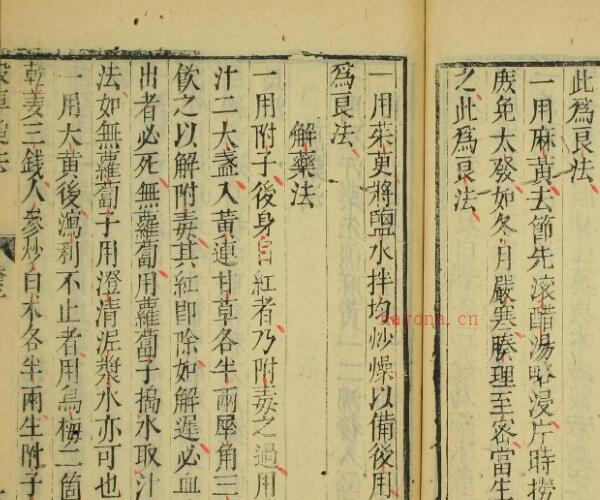 此爲良法
一用麻黃去節先滾醋湯略浸片時撈
庶免太發如冬月嚴寒腠理至密當生
之此爲良法
一用茱萸將鹽水拌均炒燥以備後用
爲良法
解藥法
一用附子後身目紅者乃附毒之過用
汁二大盞入黃連甘草各半兩犀角三
飲之以解附毒其紅卽除如解遲必血
出者必死無蘿蔔用蘿蔔子搗水取汁
法如無蘿蔔子用澄清泥漿水亦可也
一用大黃後瀉利不止者用烏梅二箇
乾姜三錢人參炒白朮各半兩生附子
nayona.cn